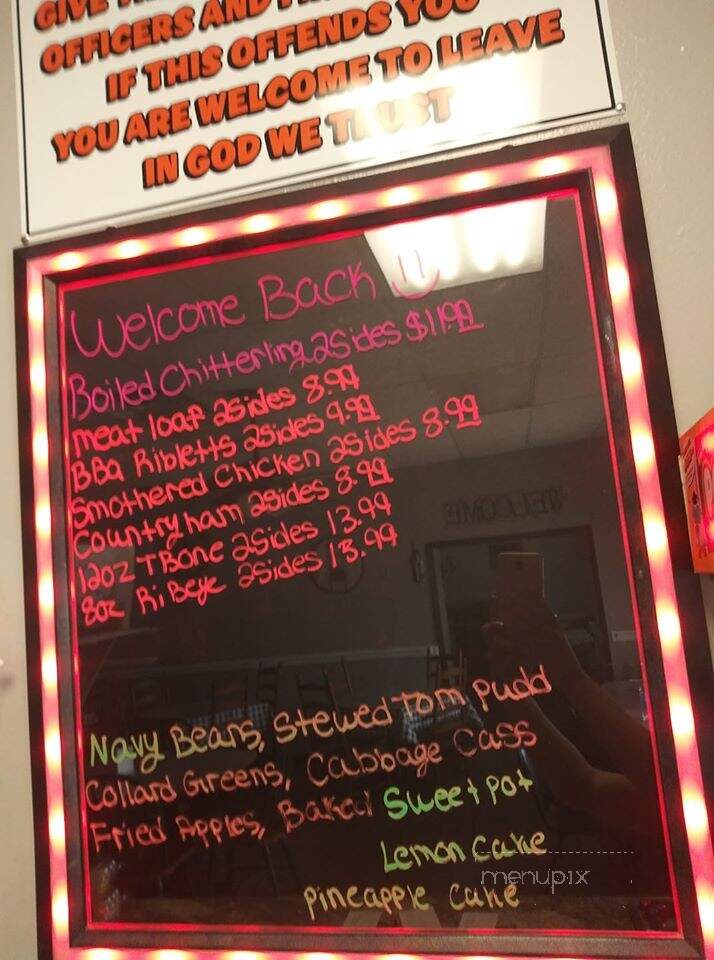 GIVE
OFFICERS AND
IF THIS OFFENDS YOU
YOU ARE WELCOME TO LEAVE
IN GOD WE TRUST
Welcome Back
Boiled Chitterling 2Sides $11.99
meat loaf 2sides 8.99
BBQ Ribletts 2Sides 9.99
Smothered Chicken 2Sides 8.99
Country ham 2Sides 8.99
12oz TBone 2Sides 13.99
8oz RiBeye 2Sides 13.99
WELCOME
Navy Beans, Stewed Tom pudd
Collard Greens, Cabbage Cass
Fried Apples, Baked Sweet pot
Lemon Cake
menupix
pineapple Cake